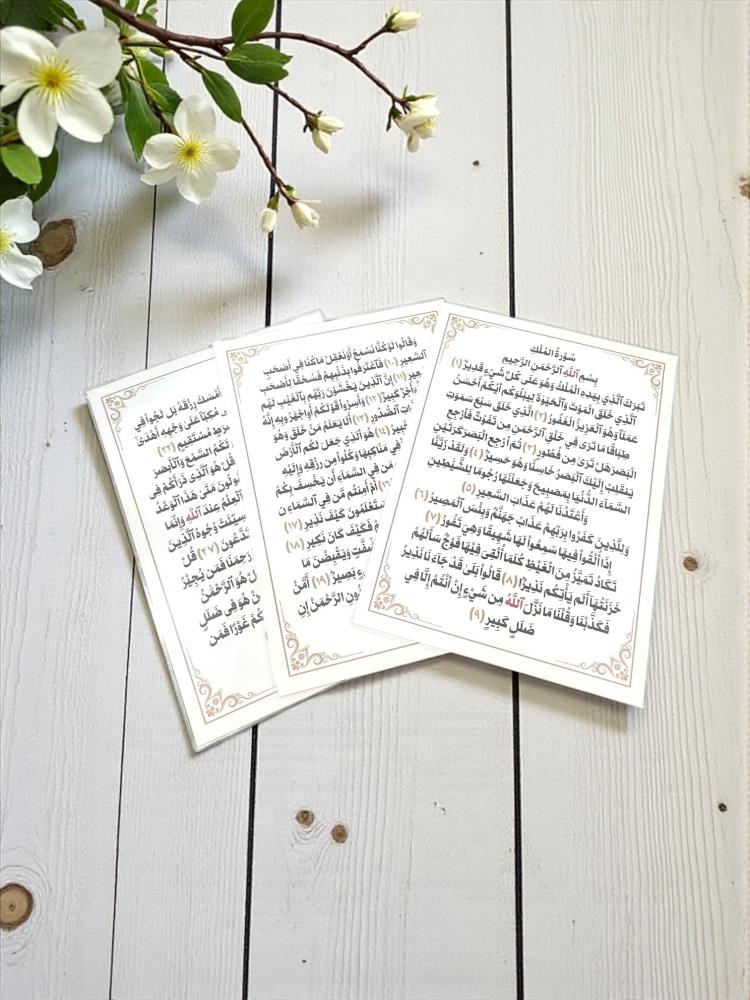 سُورَةُ المُلْك
بِسْمِ ٱللَّهِ ٱلرَّحْمَنِ ٱلرَّحِيمِ
تَبَرَكَ ٱلَّذِي بِيَدِهِ ٱلْمُلْكُ وَهُوَ عَلَى كُلِّ شَيْءٍ قَدِيرٌ (١)
ٱلَّذِي خَلَقَ ٱلْمَوْتَ وَٱلْحَيَوٰةَ لِيَبْلُوَكُمْ أَيُّكُمْ أَحْسَنُ
عَمَلًا وَهُوَ ٱلْعَزِيزُ ٱلْغَفُورُ (٢) ٱلَّذِي خَلَقَ سَبْعَ سَمَوَتٍ
طِبَاقًا مَّا تَرَى فِي خَلْقِ ٱلرَّحْمَنِ مِن تَفَوُتٍ فَٱرْجِعِ
ٱلْبَصَرَ هَلْ تَرَى مِن فُطُورٍ (٣) ثُمَّ ٱرْجِعِ ٱلْبَصَرَ كَرَّتَيْنِ
يَنقَلِبْ إِلَيْكَ ٱلْبَصَرُ خَاسِئًا وَهُوَ حَسِيرٌ (٤) وَلَقَدْ زَيَّنَّا
ٱلسَّمَآءَ ٱلدُّنْيَا بِمَصَبِيحَ وَجَعَلْنَهَا رُجُومًا لِّلشَّيَطِينِ
وَأَعْتَدْنَا لَهُمْ عَذَابَ ٱلسَّعِيرِ (٥)
وَلِلَّذِينَ كَفَرُوا بِرَبِّهِمْ عَذَابُ جَهَنَّمَ وَبِئْسَ ٱلْمَصِيرُ (٦)
إِذَا أُلْقُوا فِيهَا سَمِعُوا لَهَا شَهِيقًا وَهِيَ تَفُورُ (٧)
تَكَادُ تَمَيَّزُ مِنَ ٱلْغَيْظِ كُلَّمَا أُلْقِيَ فِيهَا فَوْجٌ سَأَلَهُمْ
خَزَنَتُهَا أَلَمْ يَأْتِكُمْ نَذِيرٌ (٨) قَالُوا بَلَى قَدْ جَآءَنَا نَذِيرٌ
فَكَذَّبْنَا وَقُلْنَا مَا نَزَّلَ ٱللَّهُ مِن شَيْءٍ إِنْ أَنتُمْ إِلَّا فِي
ضَلَلٍ كَبِيرٍ (٩)
وَقَالُوا لَوْ كُنَّا نَسْمَعُ أَوْ نَعْقِلُ مَا كُنَّا فِي أَصْحَبِ
ٱلسَّعِيرِ (١٠) فَٱعْتَرَفُوا بِذَنۢبِهِمْ فَسُحْقًا لِّأَصْحَبِ
(١١) إِنَّ ٱلَّذِينَ يَخْشَوْنَ رَبَّهُم بِٱلْغَيْبِ لَهُم
وَأَجْرٌ كَبِيرٌ (١٢) وَأَسِرُّوا قَوْلَكُمْ أَوِ ٱجْهَرُوا بِهِ إِنَّهُ
ٱلصُّدُورِ (١٣) أَلَا يَعْلَمُ مَنْ خَلَقَ وَهُوَ
(١٤) هُوَ ٱلَّذِي جَعَلَ لَكُمُ ٱلْأَرْضَ
فِي مَنَاكِبِهَا وَكُلُوا مِن رِّزْقِهِ وَإِلَيْهِ
مَّن فِي ٱلسَّمَآءِ أَن يَخْسِفَ بِكُمُ
أَمْ أَمِنتُم مَّن فِي ٱلسَّمَآءِ
كَيْفَ نَذِيرِ (١٧)
فَكَيْفَ كَانَ نَكِيرِ (١٨)
وَيَقْبِضْنَ مَا
بَصِيرٌ (١٩) أَمَّنْ
ٱلرَّحْمَنِ إِنِ
أَمْسَكَ رِزْقَهُ بَل لَّجُّوا فِي
مُكِبًّا عَلَى وَجْهِهِ أَهْدَى
مُّسْتَقِيمٍ (٢٢)
لَكُمُ ٱلسَّمْعَ وَٱلْأَبْصَرَ
قُلْ هُوَ ٱلَّذِي ذَرَأَكُمْ فِي
مَتَى هَذَا ٱلْوَعْدُ
ٱلْعِلْمُ عِندَ ٱللَّهِ وَإِنَّمَا
وُجُوهُ ٱلَّذِينَ
تَدَّعُونَ (٢٧) قُلْ
رَحِمَنَا فَمَن يُجِيرُ
هُوَ ٱلرَّحْمَنُ
هُوَ فِي ضَلَلٍ
غَوْرًا فَمَن